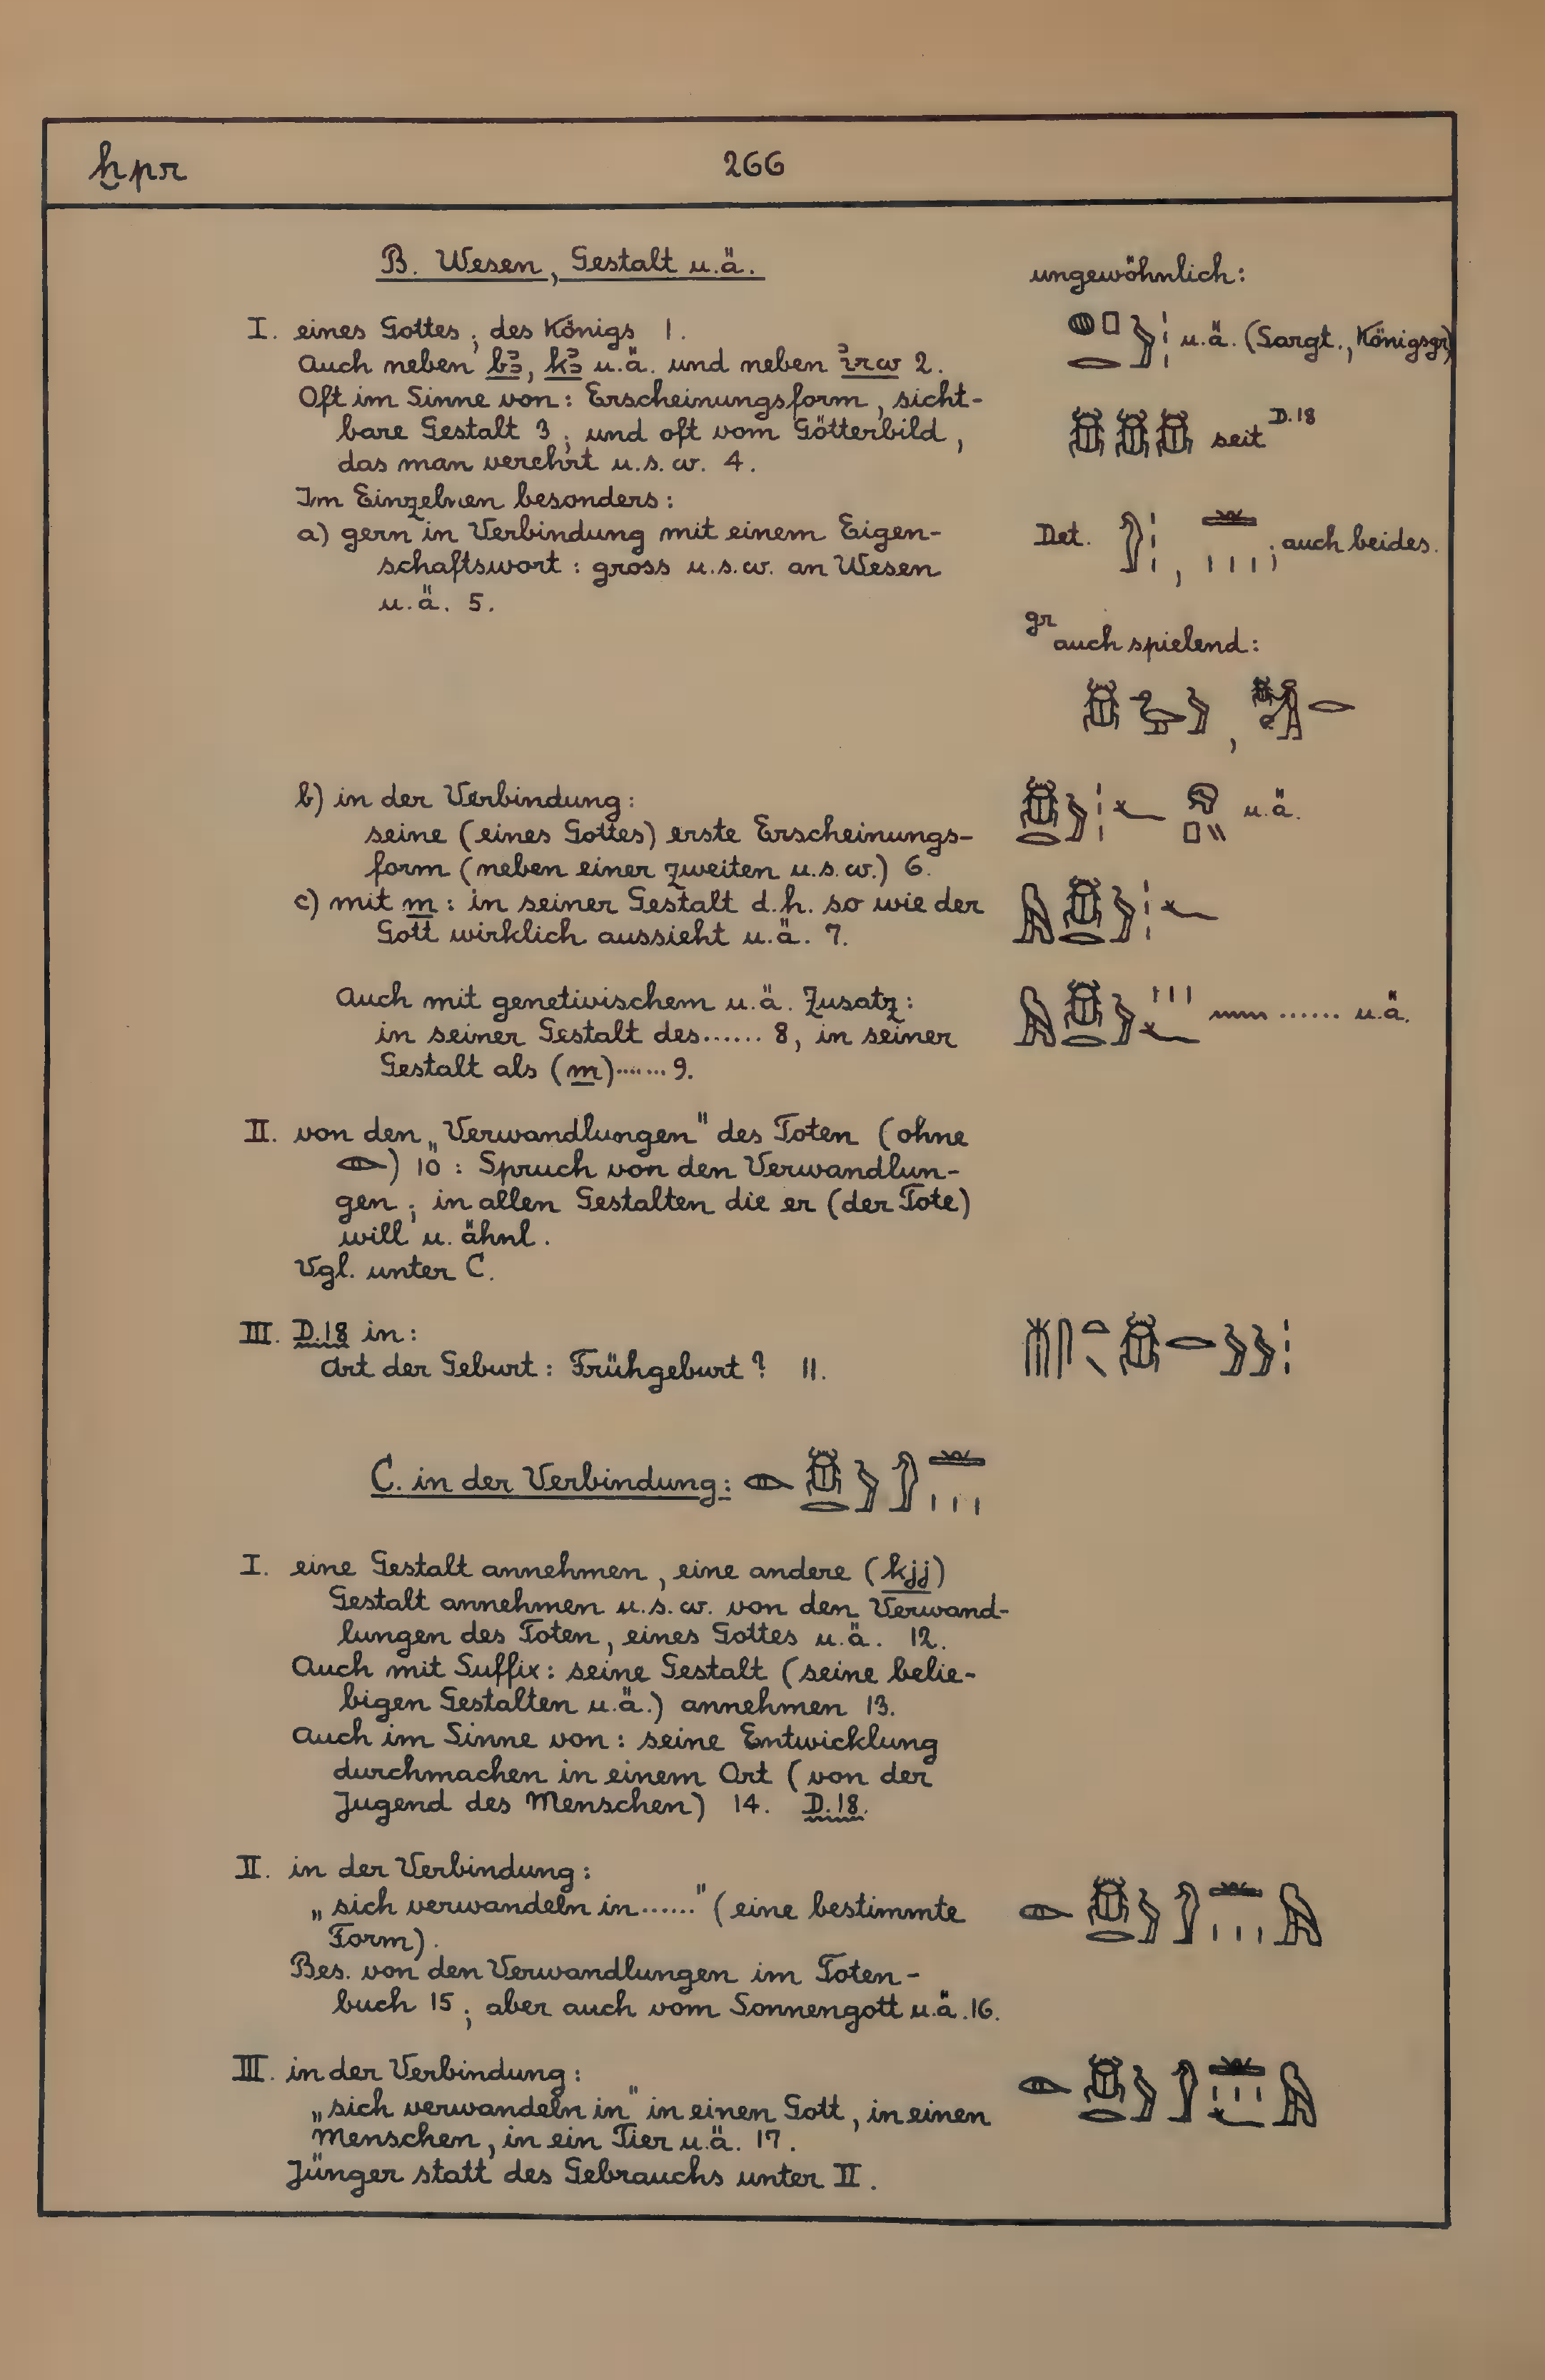 ḫpr
266
B. Wesen, Gestalt u.ä.
ungewöhnlich:
I. eines Gottes; des Königs 1.
u.ä. (Sargt., Königsgr)
Auch neben bꜣ, kꜣ u.ä. und neben ꞽrw 2.
Oft im Sinne von: Erscheinungsform, sicht-
bare Gestalt 3; und oft vom Götterbild,
seit D.18
das man verehrt u.s.w. 4.
Im Einzelnen besonders:
a) gern in Verbindung mit einem Eigen-
Det. , ; auch beides.
schaftswort: gross u.s.w. an Wesen
u.ä. 5.
gr auch spielend:
,
b) in der Verbindung:
u.ä.
seine (eines Gottes) erste Erscheinungs-
form (neben einer zweiten u.s.w.) 6.
c) mit m: in seiner Gestalt d.h. so wie der
Gott wirklich aussieht u.ä. 7.
Auch mit genetivischem u.ä. Zusatz:
...... u.ä.
in seiner Gestalt des...... 8, in seiner
Gestalt als (m)....... 9.
II. von den „Verwandlungen" des Toten (ohne
) 10: Spruch von den Verwandlun-
gen; in allen Gestalten die er (der Tote)
will u. ähnl.
Vgl. unter C.
III. D.18 in:
Art der Geburt: Frühgeburt? 11.
C. in der Verbindung:
I. eine Gestalt annehmen, eine andere (kjj)
Gestalt annehmen u.s.w. von den Verwand-
lungen des Toten, eines Gottes u.ä. 12.
Auch mit Suffix: seine Gestalt (seine belie-
bigen Gestalten u.ä.) annehmen 13.
Auch im Sinne von: seine Entwicklung
durchmachen in einem Ort (von der
Jugend des Menschen) 14. D.18.
II. in der Verbindung:
„sich verwandeln in......" (eine bestimmte
Form).
Bes. von den Verwandlungen im Toten-
buch 15; aber auch vom Sonnengott u.ä. 16.
III. in der Verbindung:
„sich verwandeln in" in einen Gott, in einen
Menschen, in ein Tier u.ä. 17.
Jünger statt des Gebrauchs unter II.